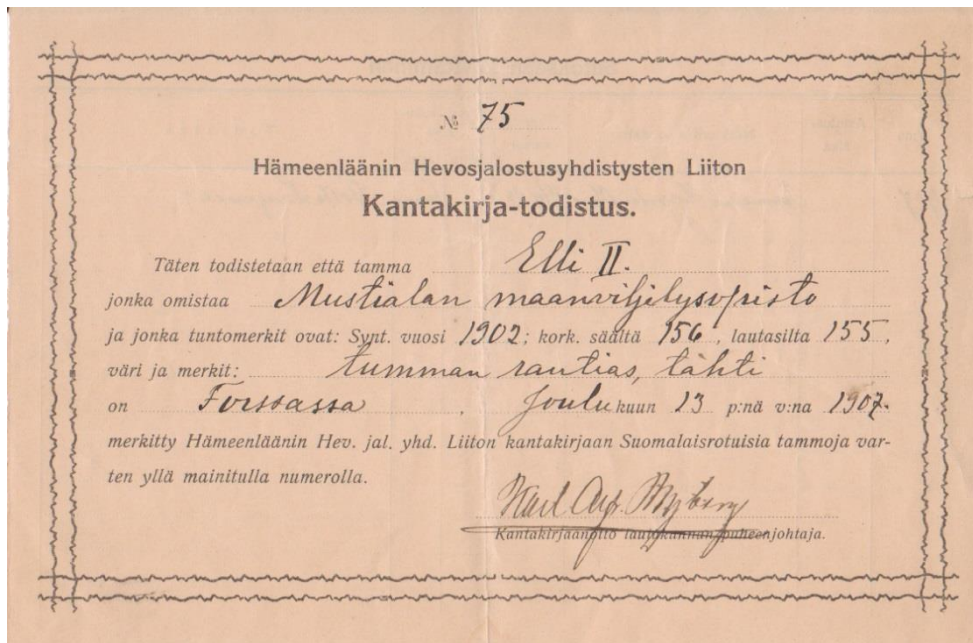 № 75
Hämeenläänin Hevosjalostusyhdistysten Liiton
Kantakirja-todistus.
Täten todistetaan että tamma Elli II.
jonka omistaa Mustialan maanviljelysopisto
ja jonka tuntomerkit ovat: Synt. vuosi 1902; kork. säältä 156, lautasilta 155,
väri ja merkit: tumman rautias, tähti
on Forssassa, Joulukuun 13 p:nä v:na 1907.
merkitty Hämeenläänin Hev. jal. yhd. Liiton kantakirjaan Suomalaisrotuisia tammoja var-
ten yllä mainitulla numerolla.
Karl Aug.
Kantakirjaanotto lautakunnan puheenjohtaja.